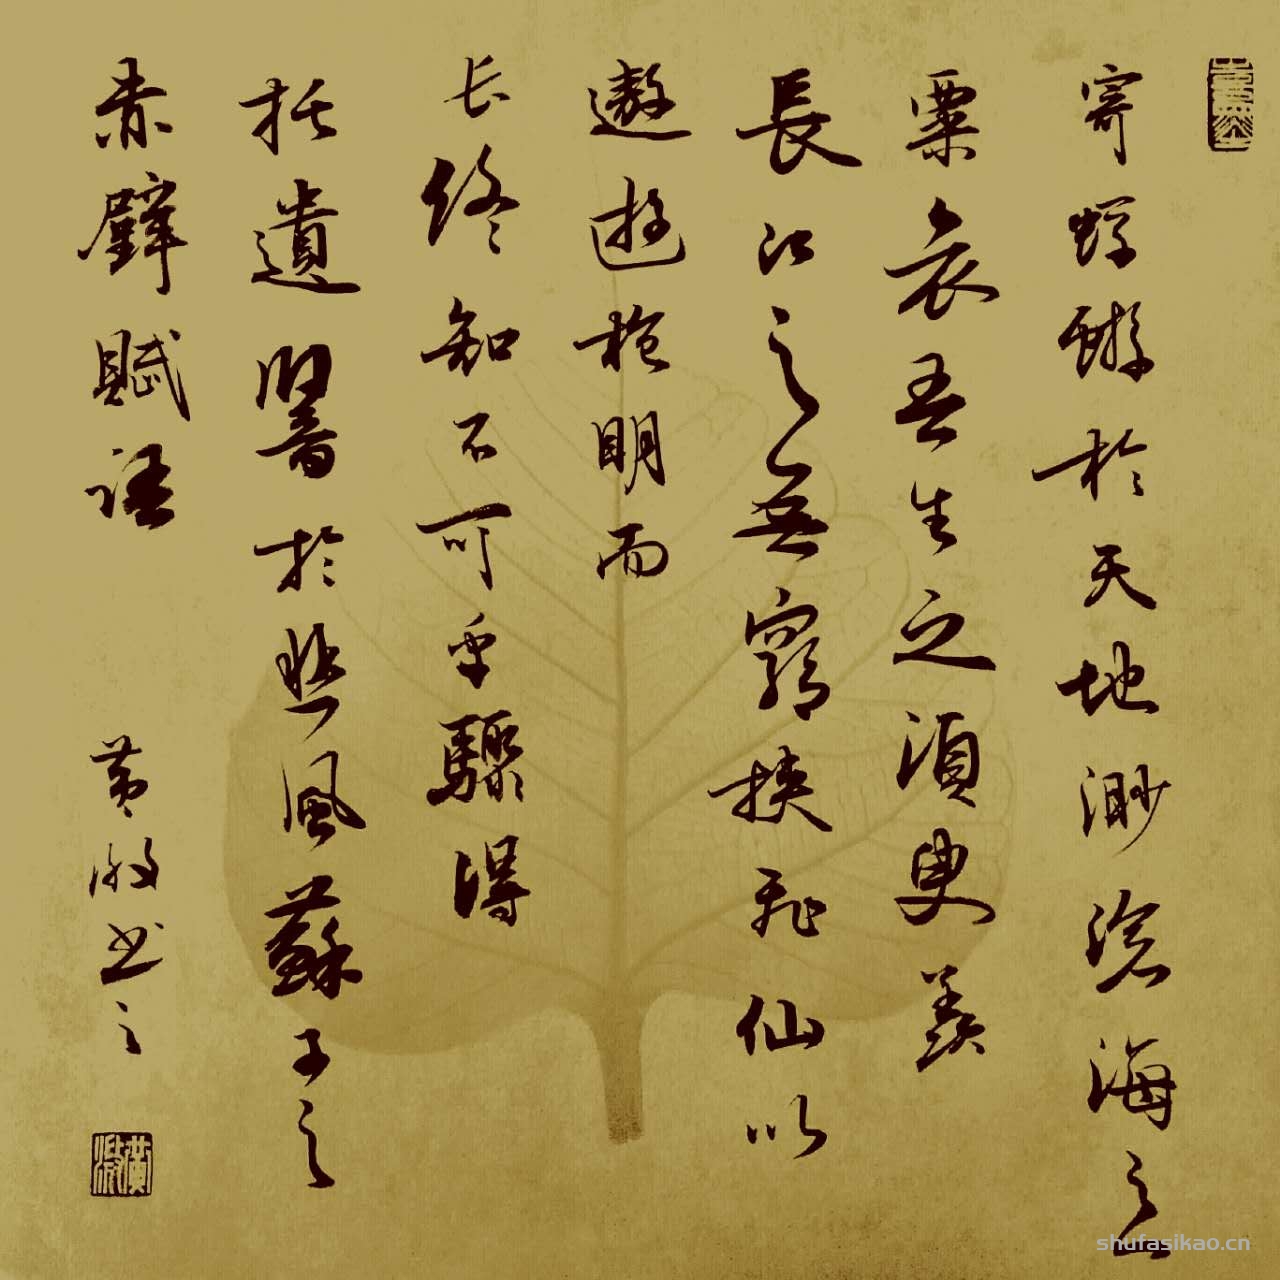 寄蜉蝣於天地渺滄海之一
粟哀吾生之須臾羨
長江之無窮挾飛仙以
遨遊抱明而
长終知不可乎驟得
托遺響於悲風蘇子之
赤壁賦語
黄书之
shufasikao.cn